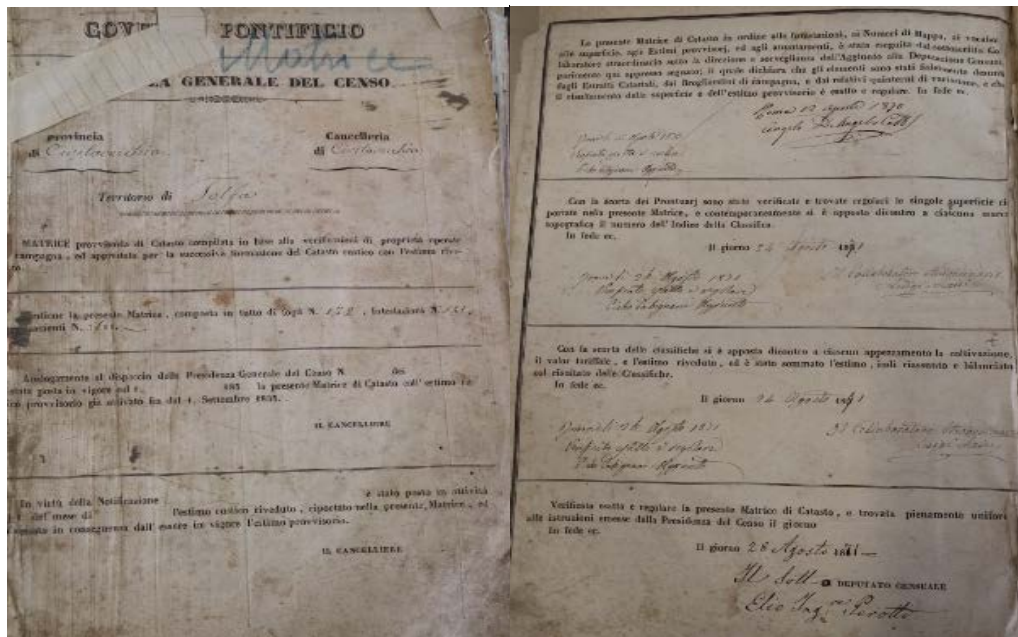 GOVE PONTIFICIO
Matrice
LA GENERALE DEL CENSO
Provincia
di Civitavecchia
Cancelleria
di Civitavecchia
Territorio di Tolfa
MATRICE provvisoria di Catasto compilata in base alla verificazione di proprietà operate
campagna, ed approvata per la successiva formazione del Catasto rustico con l'estimo rive-
to.
Contiene la presente Matrice, composta in tutto di fogli N. 172, Intestazioni N.
N.
Analogamente al dispaccio della Presidenza Generale del Censo N. des
stata posta in vigore col 1. 185 la presente Matrice di Catasto coll' estimo
provvisorio già attivato fin dal 1. Settembre 1835.
IL CANCELLIERE
In virtù della Notificazione è stato posto in attività
del mese di l'estimo rustico riveduto, riportato nella presente Matrice, ed
in conseguenza dall' essere in vigore l'estimo provvisorio.
IL CANCELLIERE
La presente Matrice di Catasto in ordine alle Intestazioni, ai Numeri di Mappa, ai vocaboli
alle superficie, agli Estimi provvisorj, ed agli annotamenti, è stata eseguita dal sottoscritto Co-
laboratore straordinario sotto la direzione e sorveglianza dell'Aggiunto alla Deputazione Censuar.
parimente qui appresso segnato; il quale dichiara che gli elementi sono stati fedelmente desunti
dagli Estratti Catastali, dai Brogliardini di campagna, e dai relativi quinterni di variazione, e che
il riportamento delle superficie e dell'estimo provvisorio è esatto e regolare. In fede ec.
Roma 12 Agosto 1870
Angelo D'Angelo
Con la scorta dei Prontuarj sono state verificate e trovate regolari le singole superficie ri-
portate nella presente Matrice, e contemporaneamente si è apposto dicontro a ciascuna marca
topografica il numero dell' Indice della Classifica.
In fede ec.
Il giorno 24 Agosto 1871
Il Collaboratore Straordinario
Luigi
26 Agosto 1871
Con la scorta delle classifiche si è apposta dicontro a ciascun appezzamento la coltivazione,
il valor tariffale, e l'estimo riveduto, ed è stato sommato l'estimo, indi riassunto e bilanciato
col risultato delle Classifiche.
In fede ec.
Il giorno 24 Agosto 1871
Il Collaboratore Straordinario
Luigi
26 Agosto 1871
Verificata esatta e regolare la presente Matrice di Catasto, e trovata pienamente uniforme
alle istruzioni emesse dalla Presidenza del Censo il giorno
In fede ec.
Il giorno 28 Agosto 1871
Il Sott-o DEPUTATO CENSUALE
Elio Ing.re Perotti